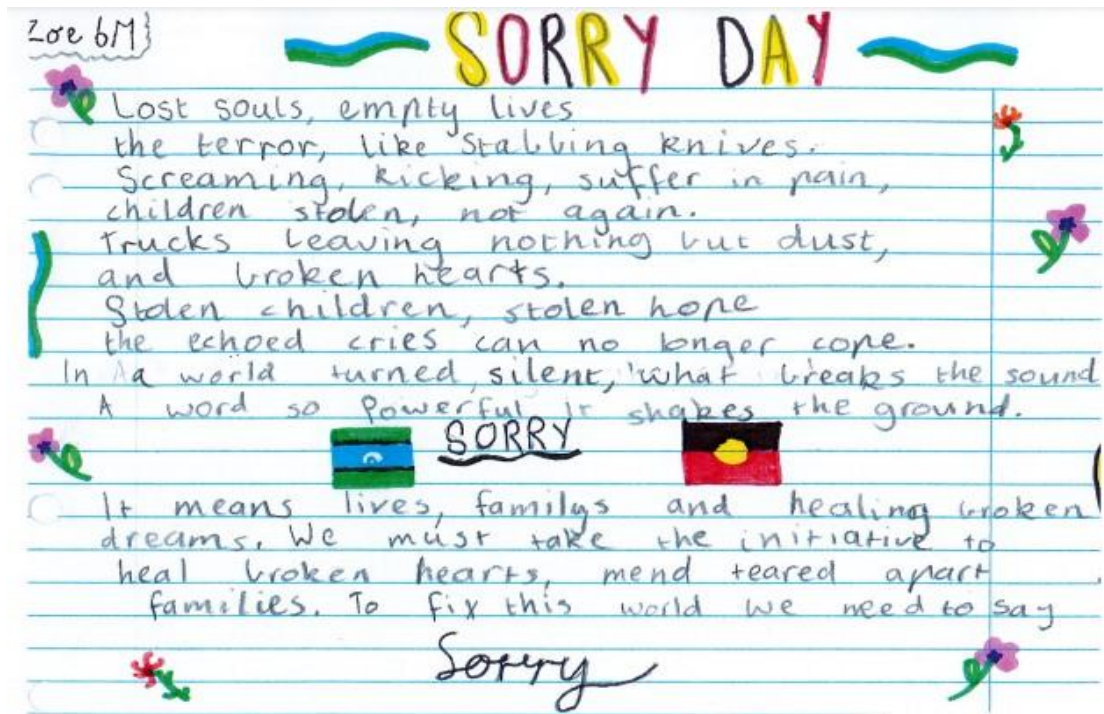 Zoe 6M
SORRY DAY
Lost souls, empty lives
the terror, like stabbing knives.
Screaming, kicking, suffer in pain,
children stolen, not again.
Trucks leaving nothing but dust,
and broken hearts.
Stolen children, stolen hope
the echoed cries can no longer cope.
In a world turned silent, what breaks the sound
A word so powerful it shakes the ground.
SORRY
It means lives, familys and healing broken
dreams. We must take the initiative to
heal broken hearts, mend teared apart
families. To fix this world we need to say
Sorry